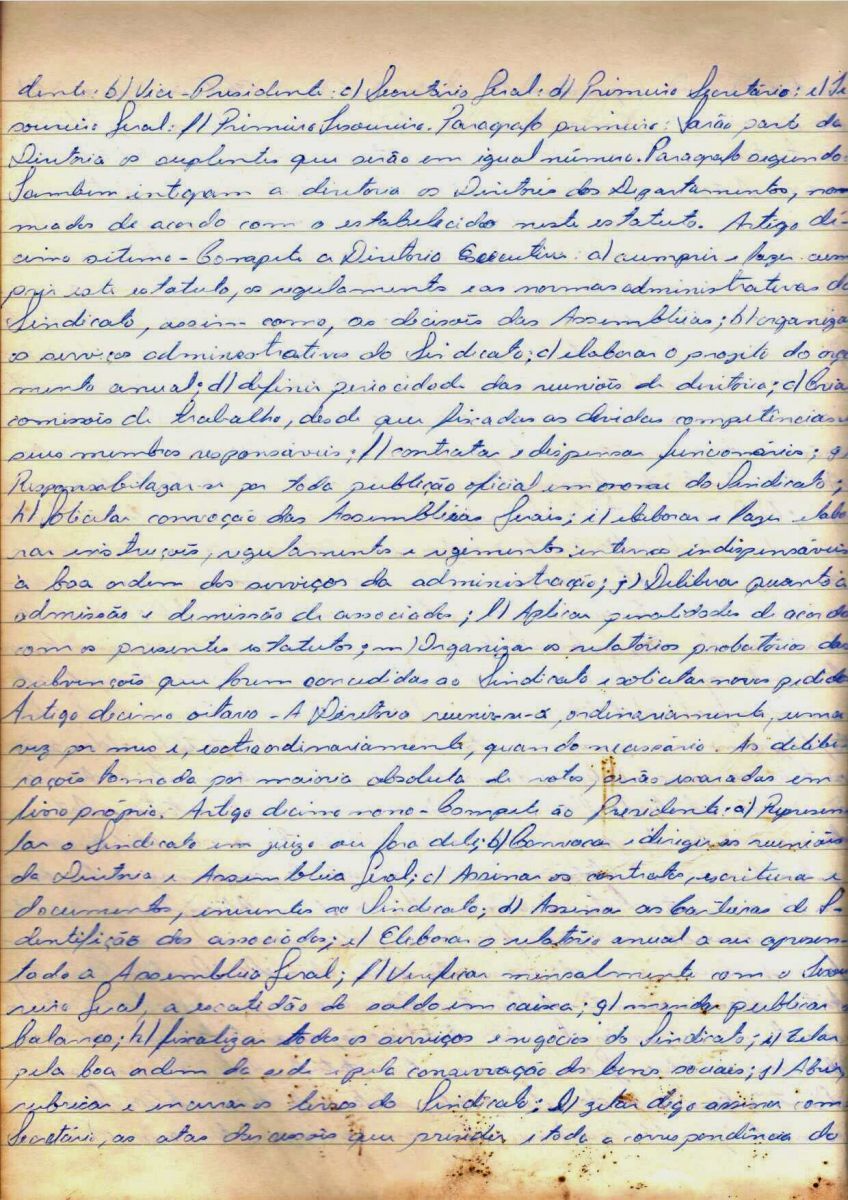 dente: b) Vice-Presidente: c) Secretário Geral: d) Primeiro Secretário: e) Te
soureiro Geral: f) Primeiro Tesoureiro. Paragrafo primeiro: Farão parte da
Diretória os suplentes que serão em igual número. Paragrafo segundo:
Tambem integram a diretoria os Diretores dos Departamentos, no
meados de acordo com o estabelecido neste estatuto. Artigo dé-
cimo sétemo - Compete a Diretório Executiva: a) cumprir e fazer cum
prir este estatuto, os regulamento e as normas administrativas do
Sindicato, assim como, as decisões das Assembléias; b) organiza
os serviços administrativos do Sindicato; c) elaborar o projeto do orça
mento anual; d) definir periocidade das reuniões de diretória; e) Cria
comissões de trabalho, desde que fixadas as devidas competências e
seus membros responsáveis; f) contratar e dispensar funcionários; g)
Responsabilazar-se por toda publição oficial em nome do Sindicato;
h) Solicitar convoção das Assembléias Gerais; i) elaborar e fazer elabo
rar instruções, regulamentos e regimentos internos indispensáveis
à boa ordem dos serviços da administração; j) Deliberar quanto à
admissão e demissão de associados; l) Aplicar penalidades de acordo
com os presentes estatutos; m) Organizar os relatórios probatórios das
subvenções que forem concedidas ao Sindicato e solicitar novos pedido
Artigo decimo oitavo - A Diretória reunir-se-á, ordinariamente, uma
vez por mês e, extraordinariamente, quando necessário. As delibe
rações tomada por maioria absoluta de votos, serão exaradas em
livro próprio. Artigo decimo nono - Compete ão Presidente: a) Represen
tar o Sindicato em juizo ou fora dele; b) Convocar e dirigir as reuniões
da Diretória e Assembléia Geral; c) Assinar os contratos, escritura e
documentos, inerentes ao Sindicato; d) Assinar as Carteiras de I-
dentifição dos associados; e) Eleborar o relatório anual a ser apresen
tado a Assembléia Geral; f) Verificar mensalmente com o Tesou
reiro Geral, a exatedão do saldo em caixa; g) mandar publicar o
balanço; h) fiscalizar todos os serviços e negócios do Sindicato; i) Zelar
pela boa ordem da sede e pela conservação dos bens sociais; j) Abrir,
rubricar e encerrar os livros do Sindicato; l) zelar digo assinar com
Secretário, as atas das sessões que presidir e toda a correspondência do